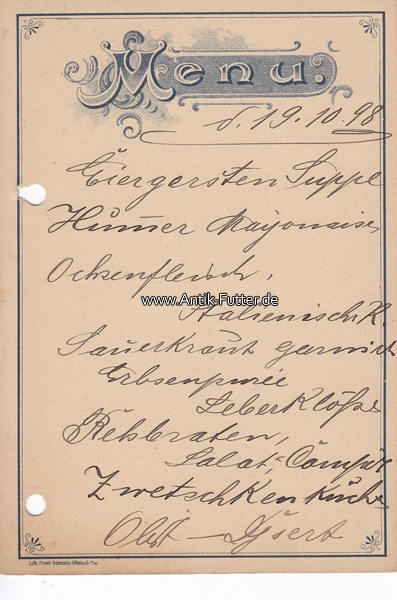 Menu.
d. 19. 10. 98
Eiergersten Suppe
Hummer Mayonaise,
Ochsenfleisch,
www.Antik-Futter.de
Italienisch K.
Sauerkraut garnirt
Erbsenpurée
Leberklöße
Rehbraten,
Salat, Compôt
Zwetschkenkuche
Obst — Dessert